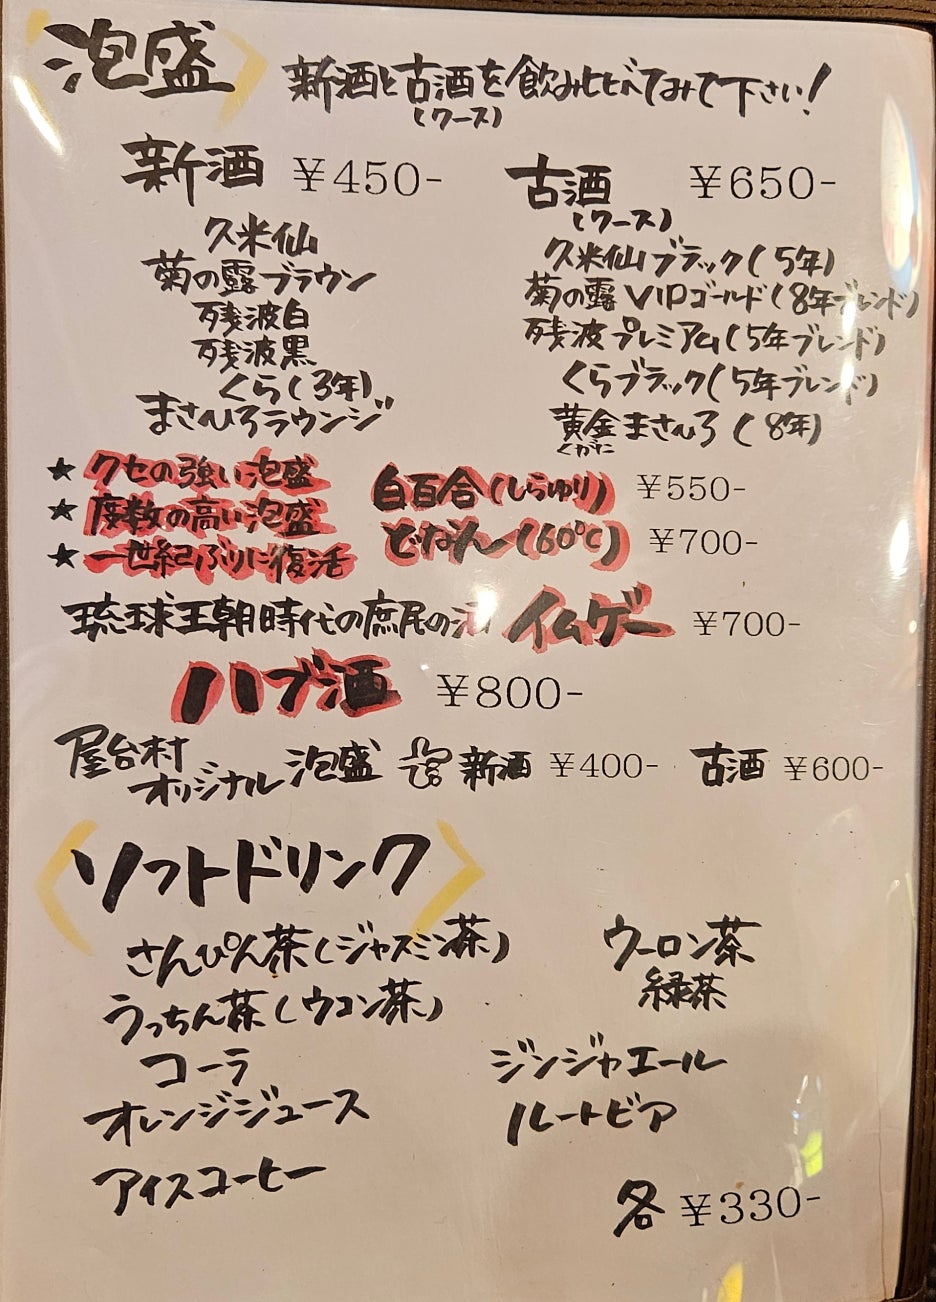 泡盛 新酒と古酒を飲み比べてみて下さい!
(クース)
新酒 ¥450-
久米仙
菊の露ブラウン
残波白
残波黒
くら(3年)
まさひろラウンジ
古酒 ¥650-
(クース)
久米仙ブラック(5年)
菊の露VIPゴールド(8年ブレンド)
残波プレミアム(5年ブレンド)
くらブラック(5年ブレンド)
黄金まさひろ(8年)
くがに
★クセの強い泡盛 白百合(しらゆり) ¥550-
★度数の高い泡盛 どなん(60℃) ¥700-
★一世紀ぶりに復活
琉球王朝時代の庶民の酒 イムゲー ¥700-
ハブ酒 ¥800-
屋台村
オリジナル泡盛 新酒 ¥400- 古酒 ¥600-
ソフトドリンク
さんぴん茶(ジャスミン茶)
うっちん茶(ウコン茶)
コーラ
オレンジジュース
アイスコーヒー
ウーロン茶
緑茶
ジンジャエール
ルートビア
各 ¥330-